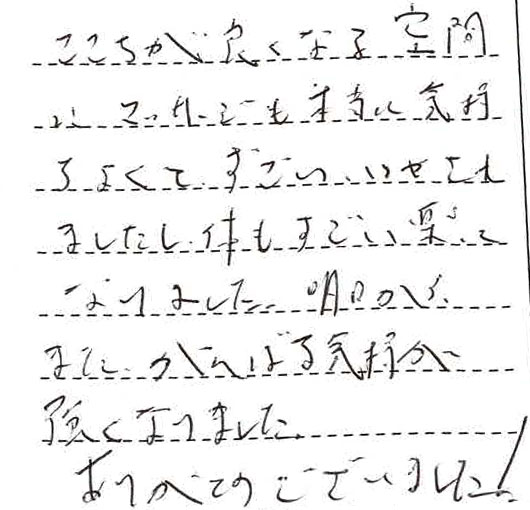 こころが良くなる空間
に、マッサージも本当に気持
ちよくて、すごい、いやされ
ましたし、体もすごい楽に
なりました。明日から、
また、がんばる気持が
強くなりました。
ありがとうございました!